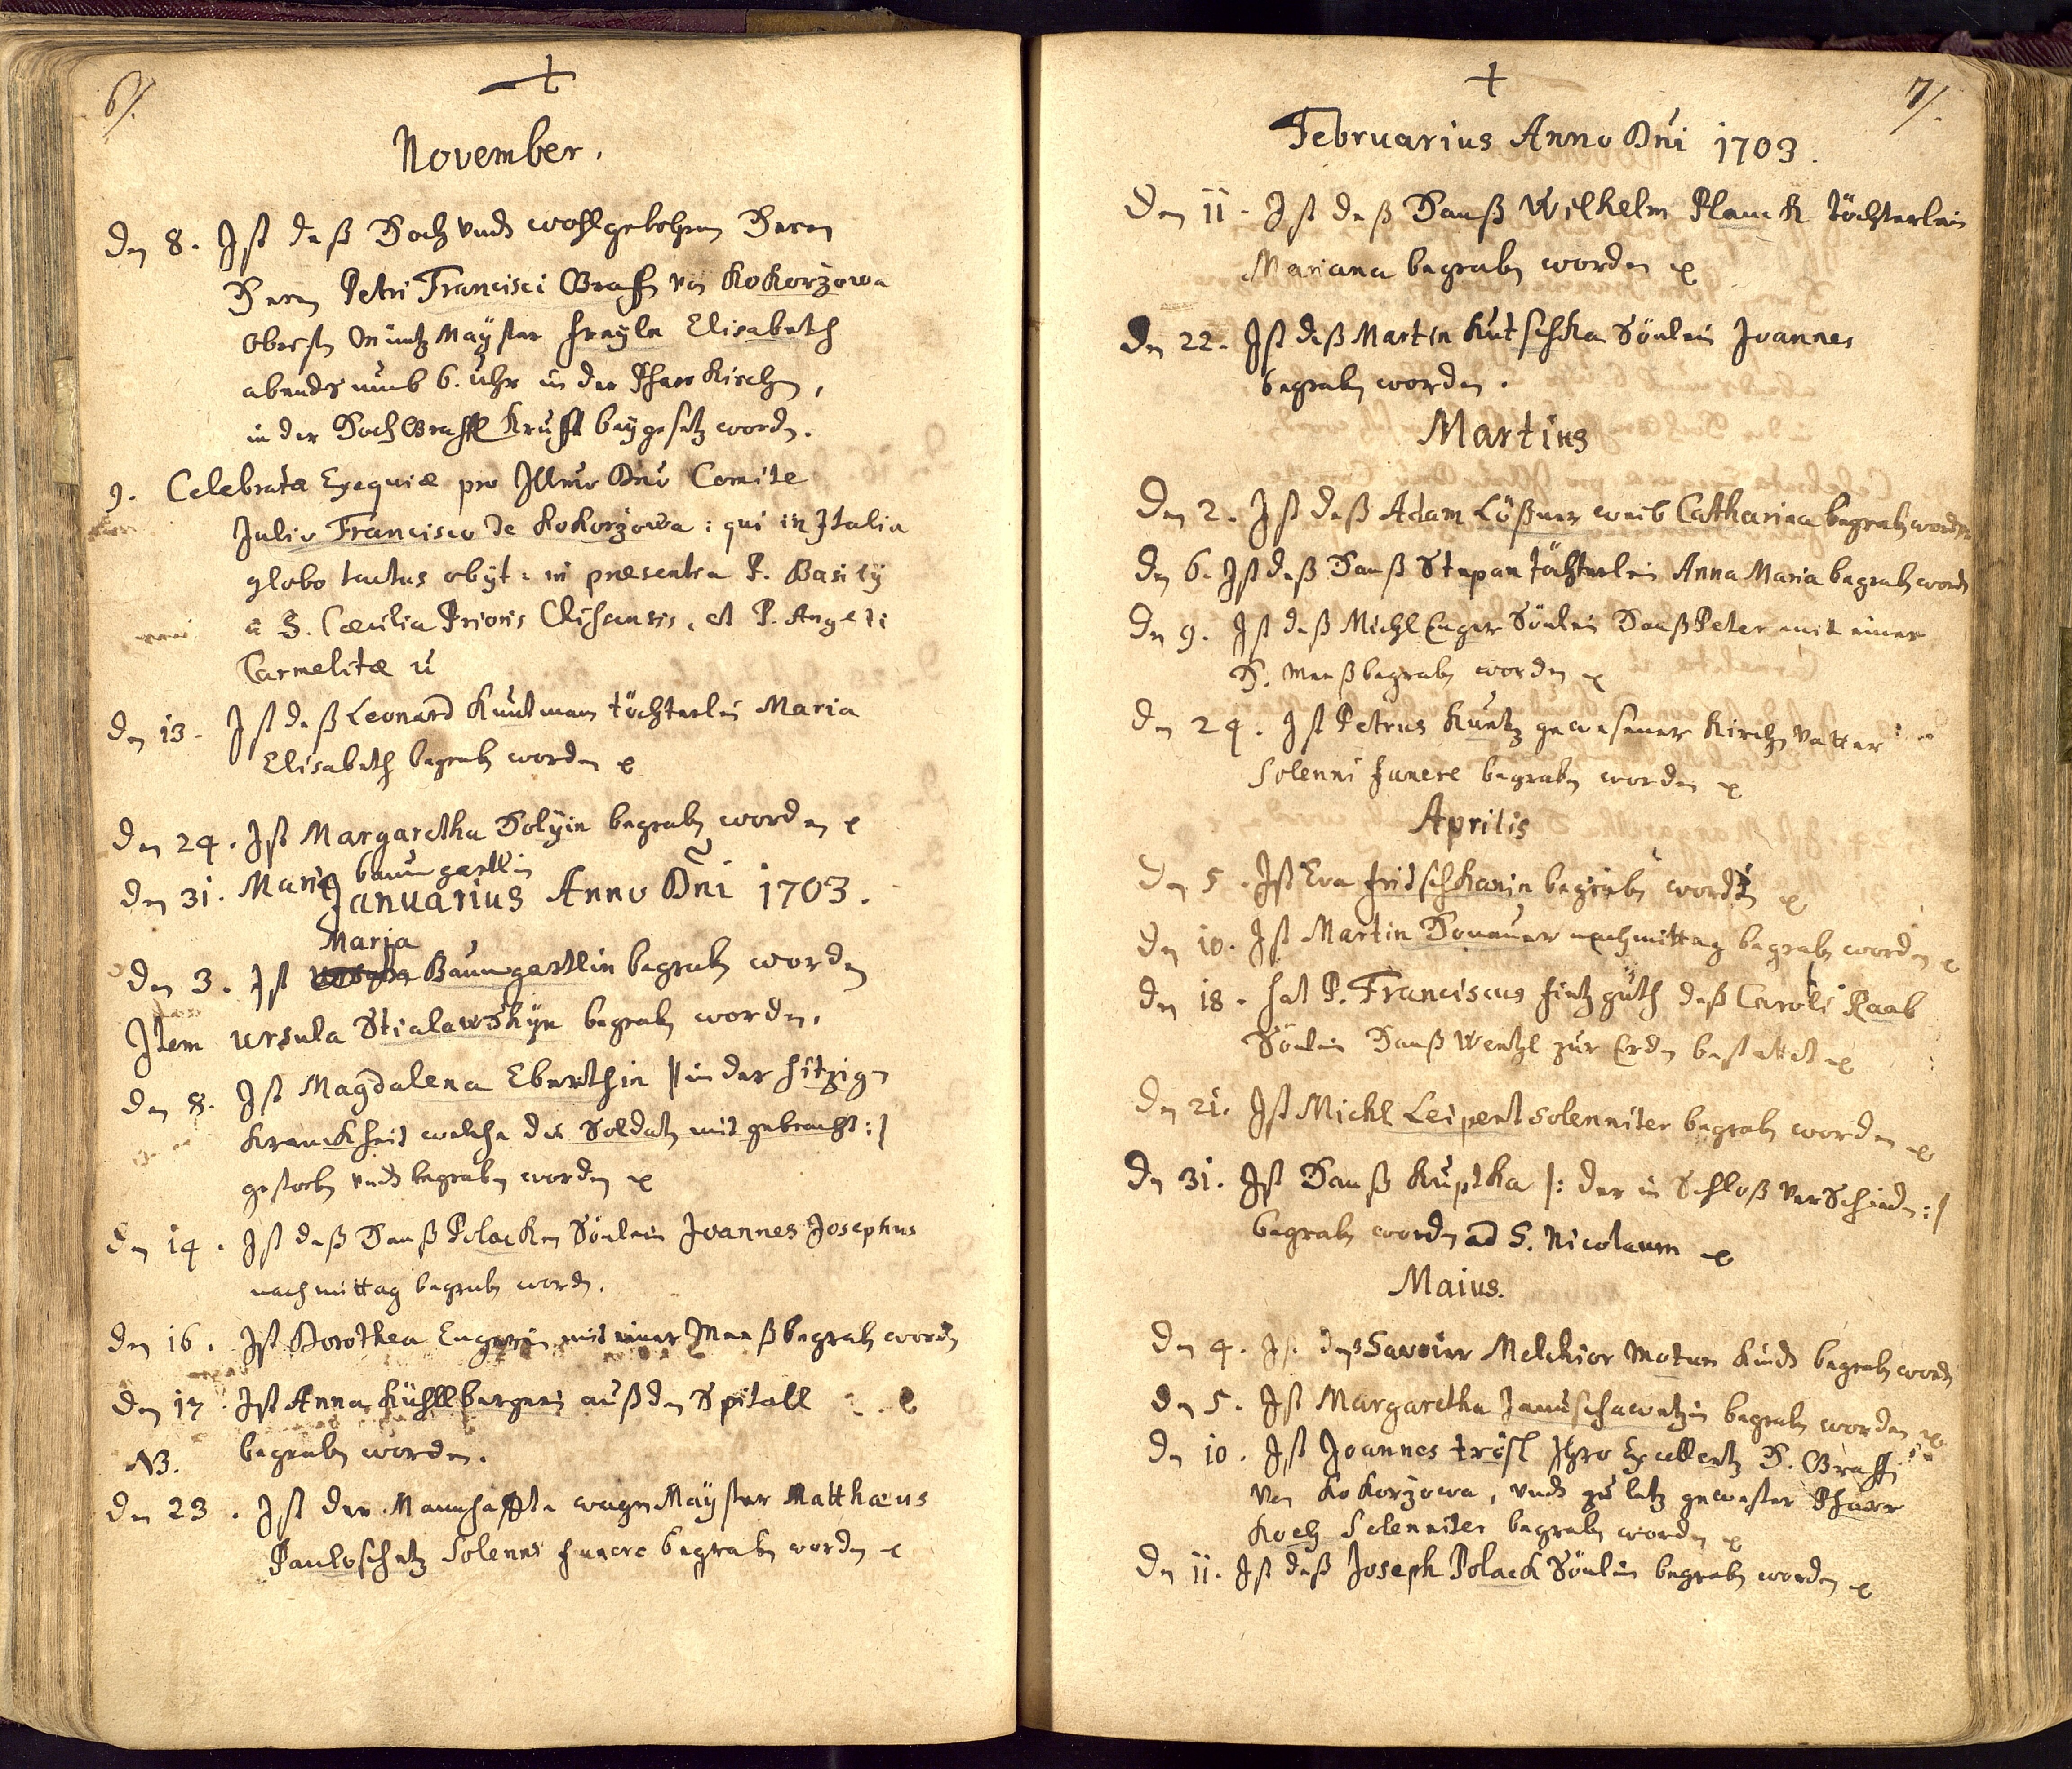 6/.
November.
Den 8. Ist deß Hoch undt wohlgebohrnen Herrn
Herrn Petri Francisci Graffen von Kokorżowa
Obristen Müntz Maÿster freyle Elisabeth
abendts umb 6. Uhr in der Pharr Kirchen,
in der Hoch Graffl Krufft beygesetz worden.
9. Celebratæ Exequiæ pro Illmo Dno Comite
Julio Francisco de Kokorżowa: qui in Italia
globo tactus obÿt: in præsentia P. Basilÿ
à S. Cæcilia Prioris, et P. Angeli
Carmelitæ
Den 13. Ist deß Leonard Kuntman töchterlein Maria
Elisabeth begraben worden
Den 24. Ist Margaretha Dolÿin begraben worden
Den 31. Maria baumgartlin
Januarius Anno Dni 1703.
Maria
Den 3. Ist Baumgartlin begraben worden
Item Ursula Stialawskÿn begraben worden.
Den 8. Ist Magdalena Eberthin |: in der hitzigen
Kranckheit welche die Soldaten mit gebracht :|
gestorben undt begraben worden
Den 14. Ist deß Hanß Polacken Söhnlein Joannes Josephus
nachmittag begraben worden.
Den 16. Ist Dorothea Engerin mit einer Meeß begraben worden
Den 17. Ist Anna Kühllbergerin auß den Spitall
begraben worden.
NB.
Den 23. Ist der Mannhaffte wagen Maÿster Matthæus
Pauloschetz Solenni funere begraben worden
7/.
Februarius Anno Dni 1703.
Den 11. Ist deß Hanß Wilhelm Planck töchterlein
Mariana begraben worden
Den 22. Ist deß Martin Kutschka Söhnlein Joannes
begraben worden.
Martius
Den 2. Ist deß Adam Lößner weib Catharina begraben worden
Den 6. Ist deß Hanß Stepan töchterlein Anna Maria begraben worden
Den 9. Ist deß Michl Enger Söhnlein Hanß Peter mit einer
H. Meeß begraben worden
Den 24. Ist Petrus Kuntz gewesener Kirchen Vatter
Solenni funere begraben worden
Aprilis
Den 5. Ist Eva fritschkanin begraben worden
Den 10. Ist Martin Donauer nachmittag begraben worden
Den 18. hat P. Franciscus hintzguth deß Caroli Raab
Söhnlein Hanß Wentzl zur Erden bestattet
Den 21. Ist Michl Leipert solenniter begraben worden
Den 31. Ist Hanß Kuptka |: der in Schloß verschieden :|
begraben worden ad S. Nicolaum
Maius.
Den 4. Ist deß Savoier Melchior Moturn Kindt begraben worden
Den 5. Ist Margaretha Januschawetzin begraben worden
Den 10. Ist Joannes tröstl Ihro Excellentz H. Graffen
von Kokorżowa, undt zu letz gewester Pfarr
Koch Solenniter begraben worden
Den 11. Ist deß Joseph Polack Söhnlein begraben worden